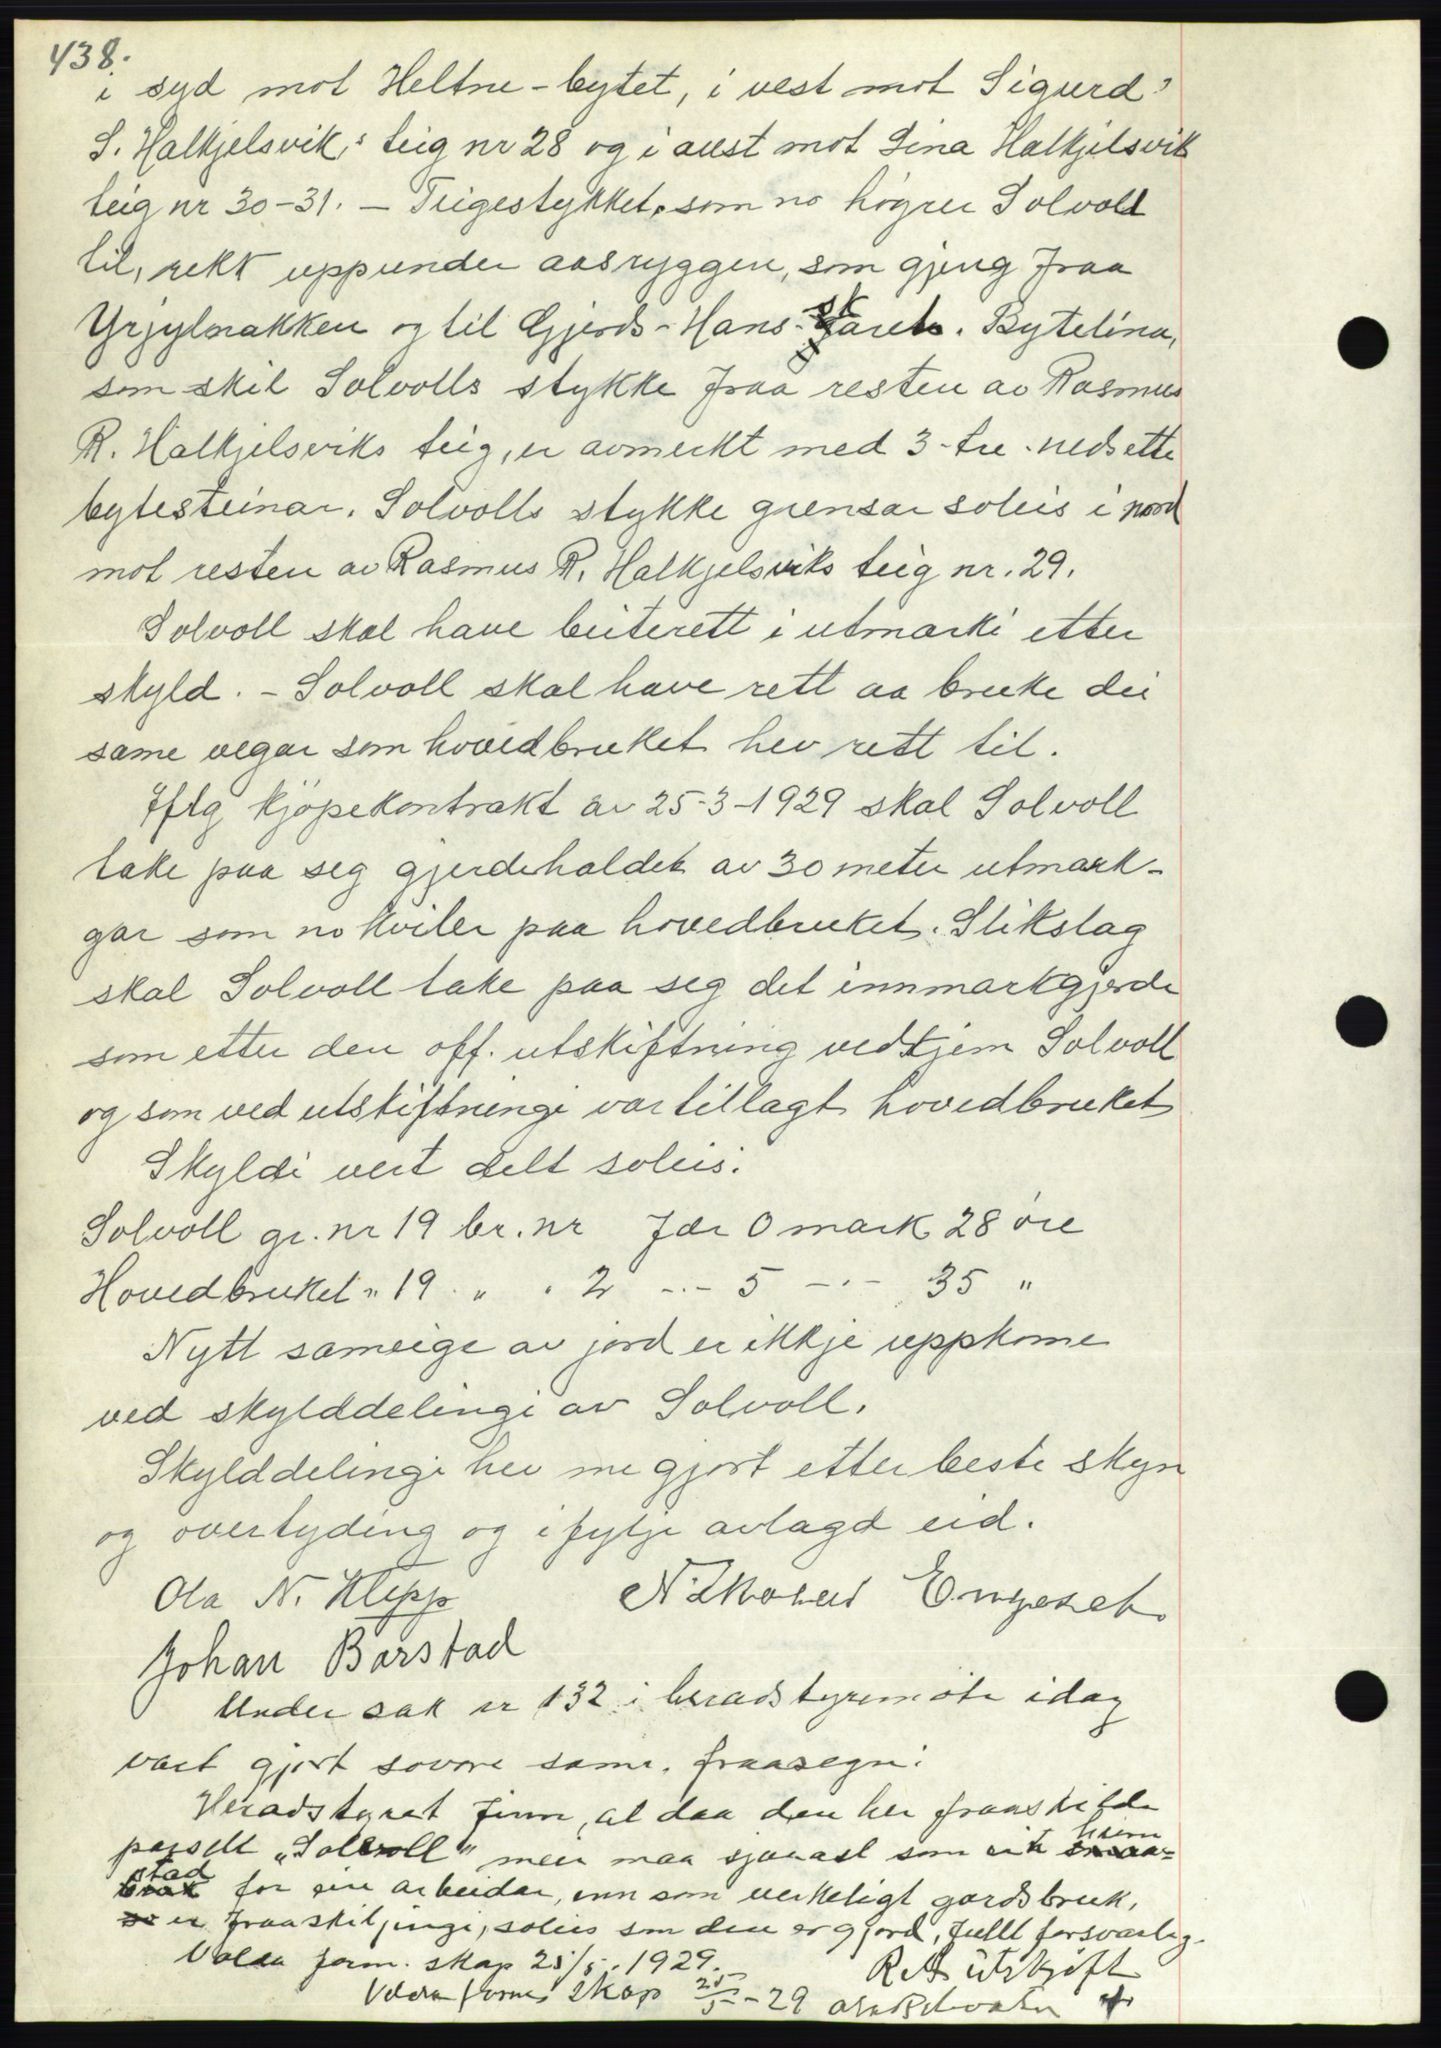 438.
i syd mot Heltne-bytet, i vest mot Sigurd
S. Halkjelsvik's teig nr 28 og i aust mot Lina Halkjelsvik
teig nr 30-31. — Teigestykket, som no høyrer Solvoll
til, rekk uppunder aasryggen, som gjeng fraa
Yrjylnakken og til Gjerds-Hans- . Bytelina,
som skil Solvolls stykke fraa resten av Rasmus
R. Halkjelsviks teig, er avmerkt med 3-tre-nedsette
bytesteinar. Solvolls stykke grensar soleis i nord
mot resten av Rasmus R. Halkjelsviks teig nr. 29.
Solvoll skal have beiterett i utmarki etter
skyld. - Solvoll skal have rett aa bruke dei
same vegar som hovedbruket hev rett til.
Iflg kjøpekontrakt av 25-3-1929 skal Solvoll
take paa seg gjerdehaldet av 30 meter utmark-
gar som no kviler paa hovedbruket. Slikslag
skal Solvoll take paa seg det innmarkgjerde
som etter den off. utskiftning vedkjem Solvoll
og som ved utskiftningi var tillagt hovedbruket
Skyldi vert delt soleis:
Solvoll gr. nr 19 br. nr   fær 0 mark 28 øre
Hovedbruket " 19 " " 2 -.- 5 -.- 35 "
Nytt sameige av jord er ikkje uppkome
ved skylddelingi av Solvoll.
Skylddelingi hev me gjort etter beste skyn
og overtyding og i fylje avlagd eid.
Ola N. Klepp   Nikolai Engeset.
Johan Barstad
Under sak nr 132 i heradstyremøte idag
vart gjort sovore samr. fraasegn:
Heradstyret finn, at daa den her fraaskilde
parsell "Solvoll" meir maa sjaaast som eit heim
stad for ein arbeidar, enn som verkeligt gardsbruk,
er fraaskiljingi, soleis som den er gjord, fullt forsvarleg.
Volda form. skap 25/5. 1929.
Rett útskrift
Volda formenskap 25/5-29